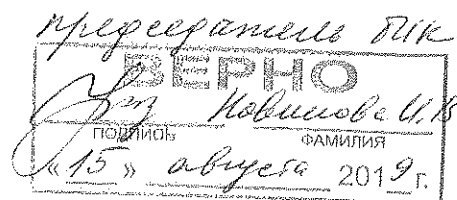 председатель ПК
ВЕРНО
Новикова И.В
ПОДПИСЬ ФАМИЛИЯ
« 15 » августа 2019 г.